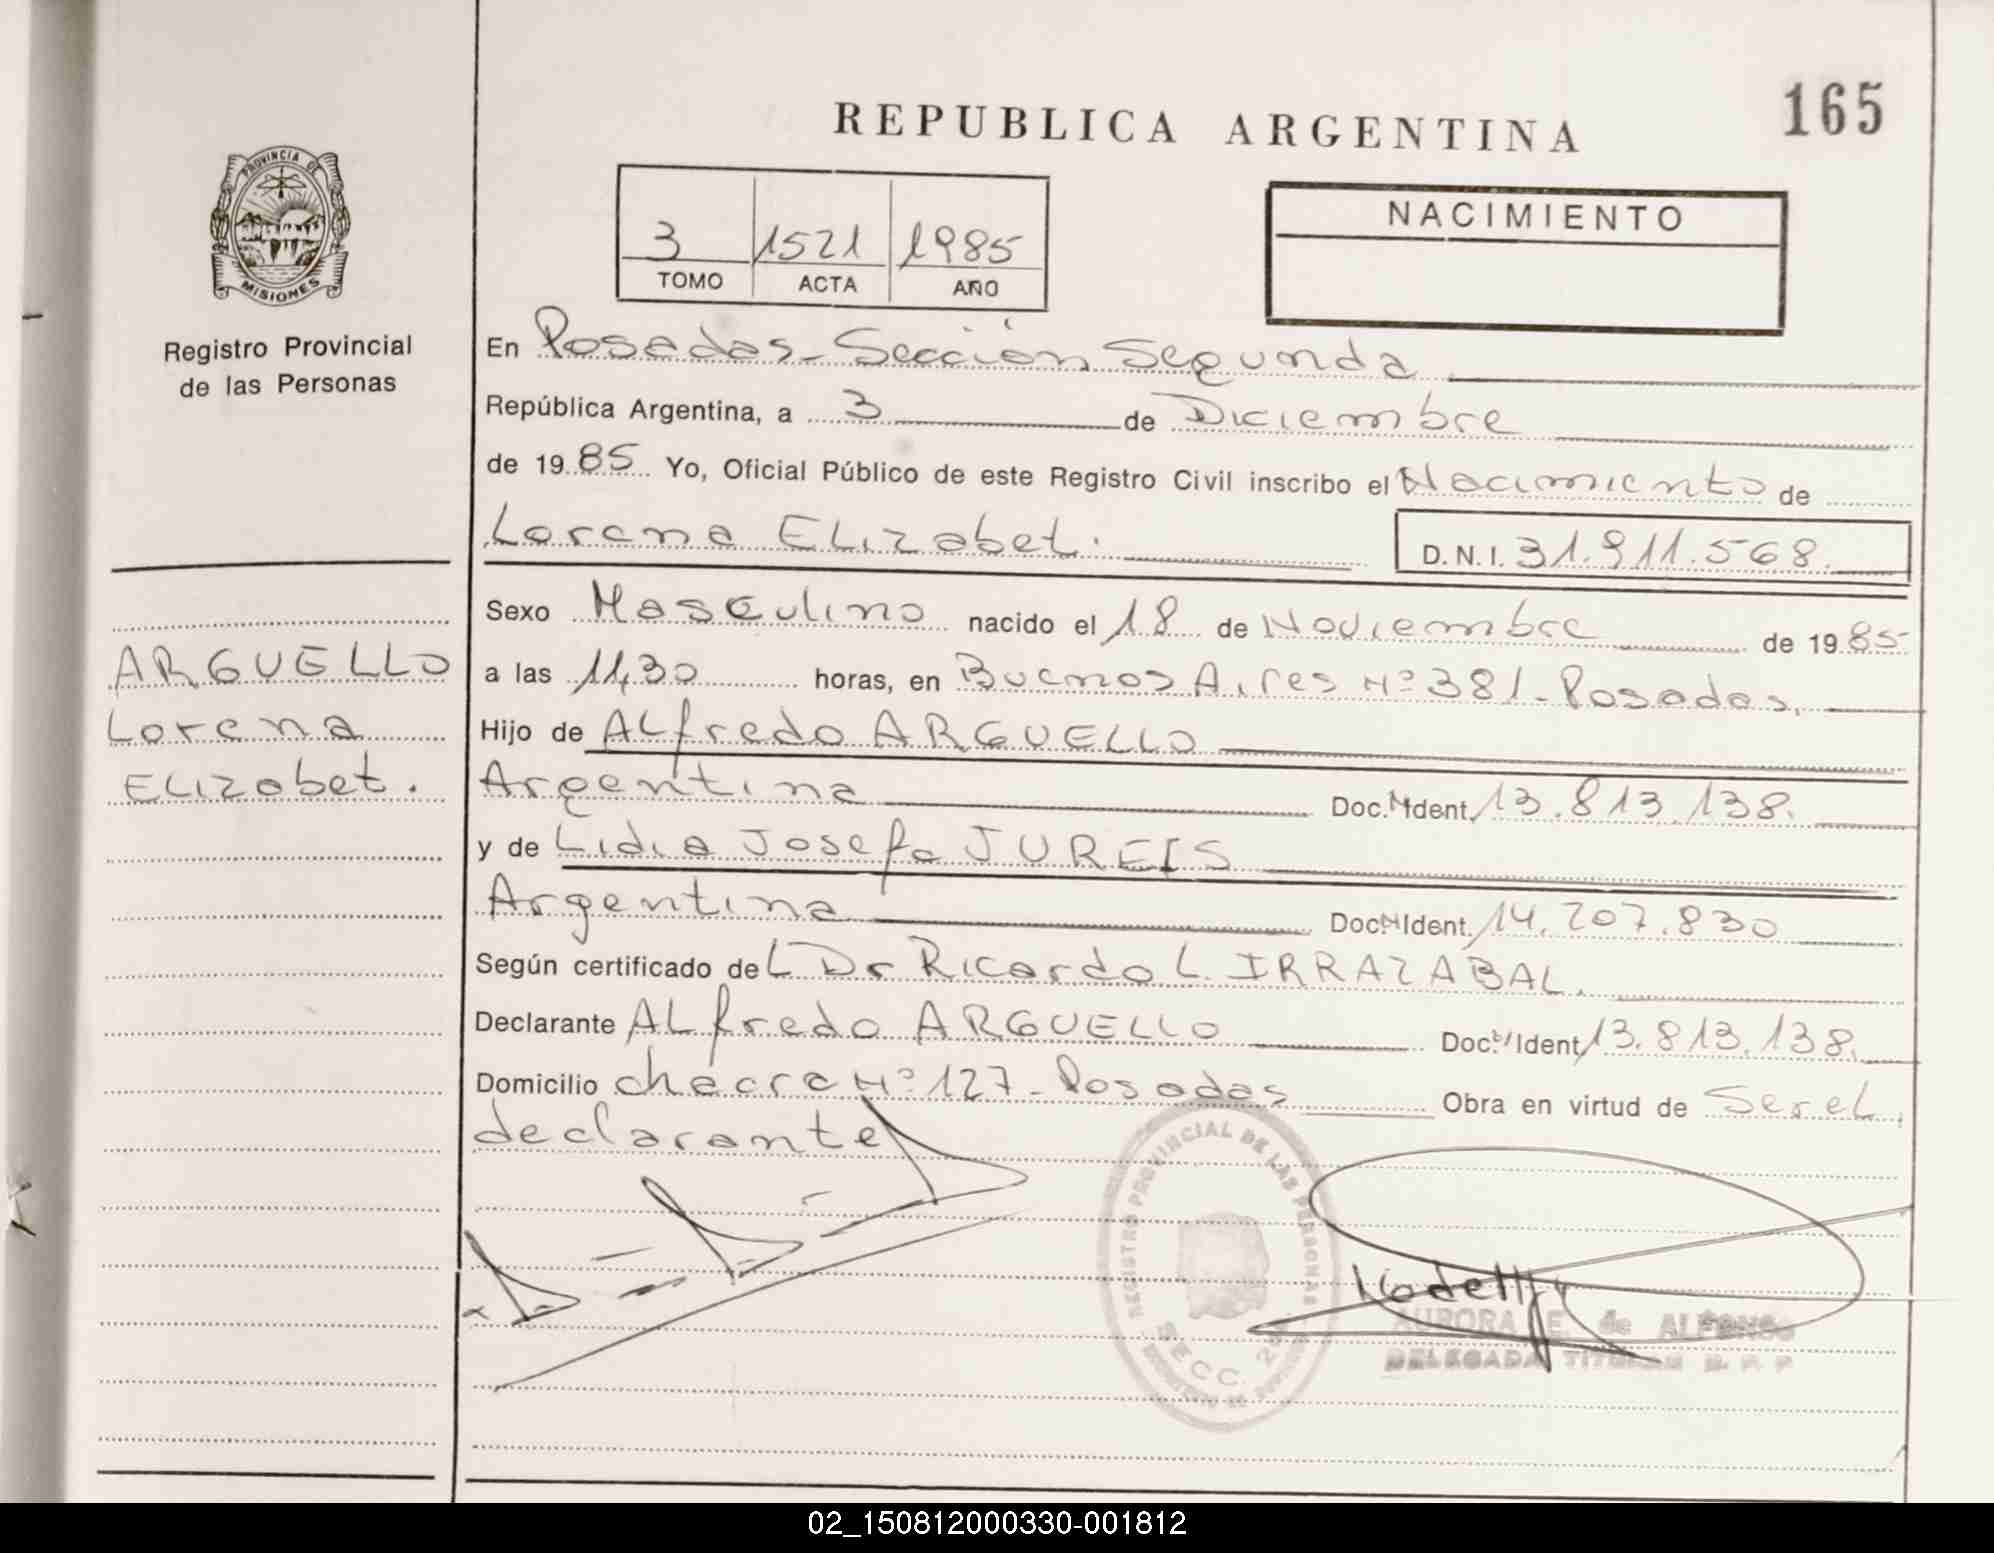 165
REPUBLICA ARGENTINA
PROVINCIA DE
MISIONES
Registro Provincial
de las Personas
3 1521 1985
TOMO ACTA AÑO
NACIMIENTO
En Posadas - Sección Segunda
República Argentina, a 3 de Diciembre
de 1985 Yo, Oficial Público de este Registro Civil inscribo el Nacimiento de
Lorena ELizabet. D.N.I. 31.911.568.
ARGUELLO
Lorena
ELizabet.
Sexo Masculino nacido el 18 de Noviembre de 1985
a las 11,30 horas, en Buenos Aires Nº 381 - Posadas.
Hijo de ALfredo ARGUELLO
Argentina Doc. Ident. 13.813.138.
y de Lidia Josefa JUREIS
Argentina Doc. Ident. 14.207.830
Según certificado del Dr Ricardo L. IRRAZABAL.
Declarante ALfredo ARGUELLO Doc. Ident. 13.813.138.
Domicilio chacra Nº 127 - Posadas Obra en virtud de Ser el
declarante
REGISTRO PROVINCIAL DE LAS PERSONAS
SECC. 2
AURORA E. de ALFONSO
DELEGADA TITULAR
02_150812000330-001812